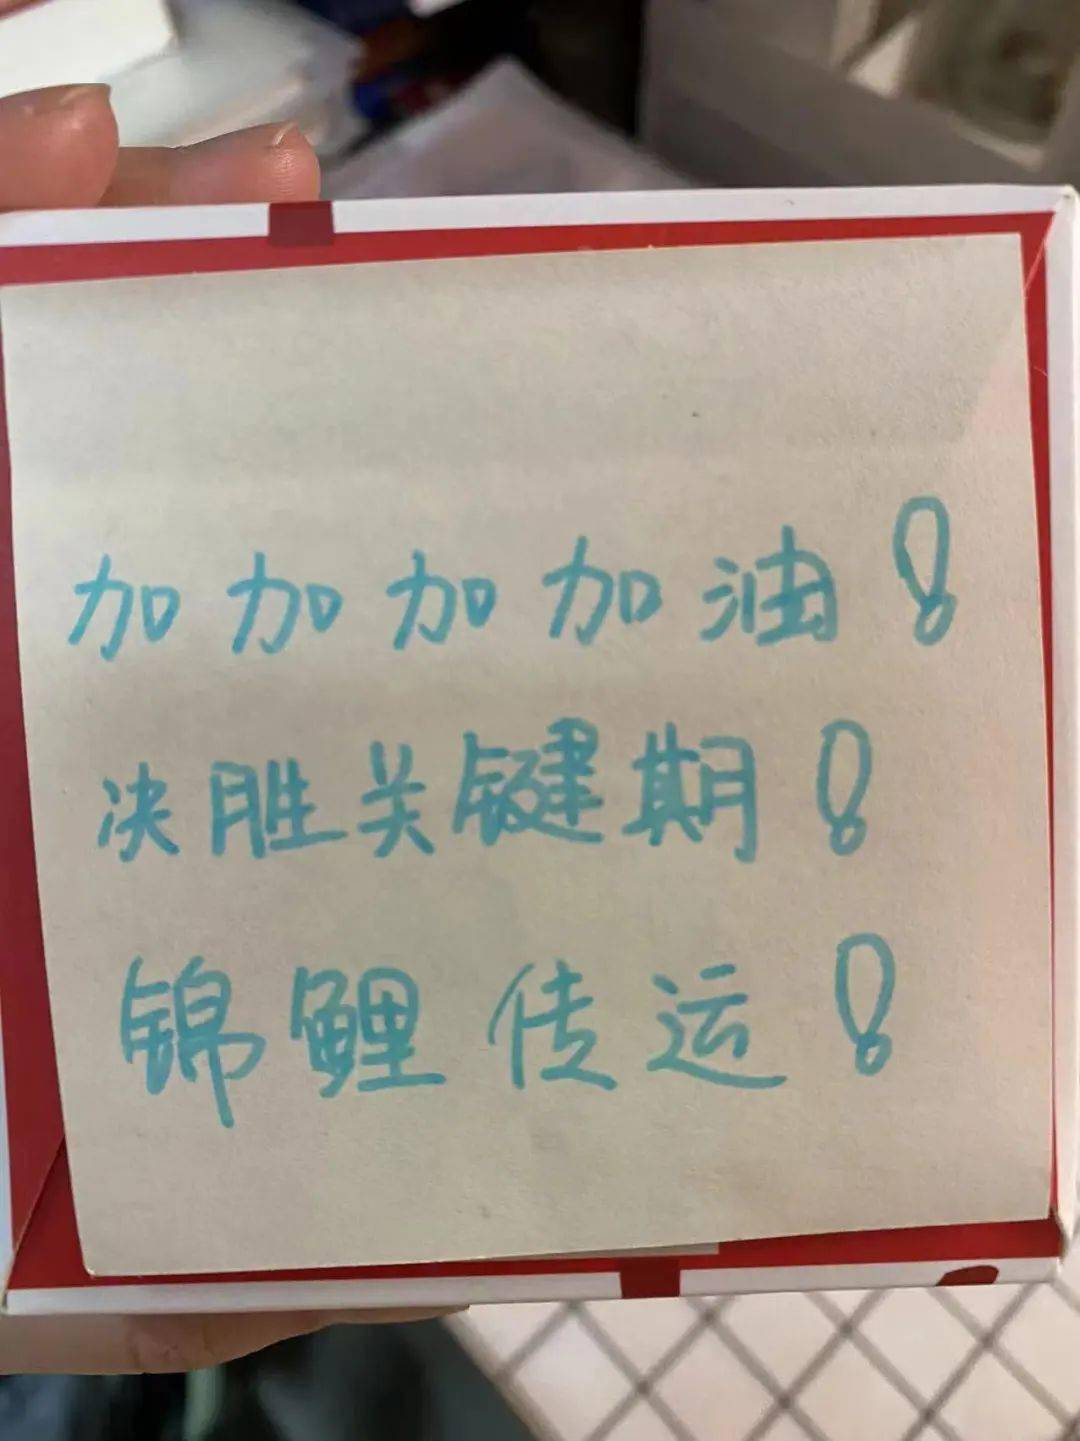 加加加加油!
决胜关键期!
锦鲤传运!